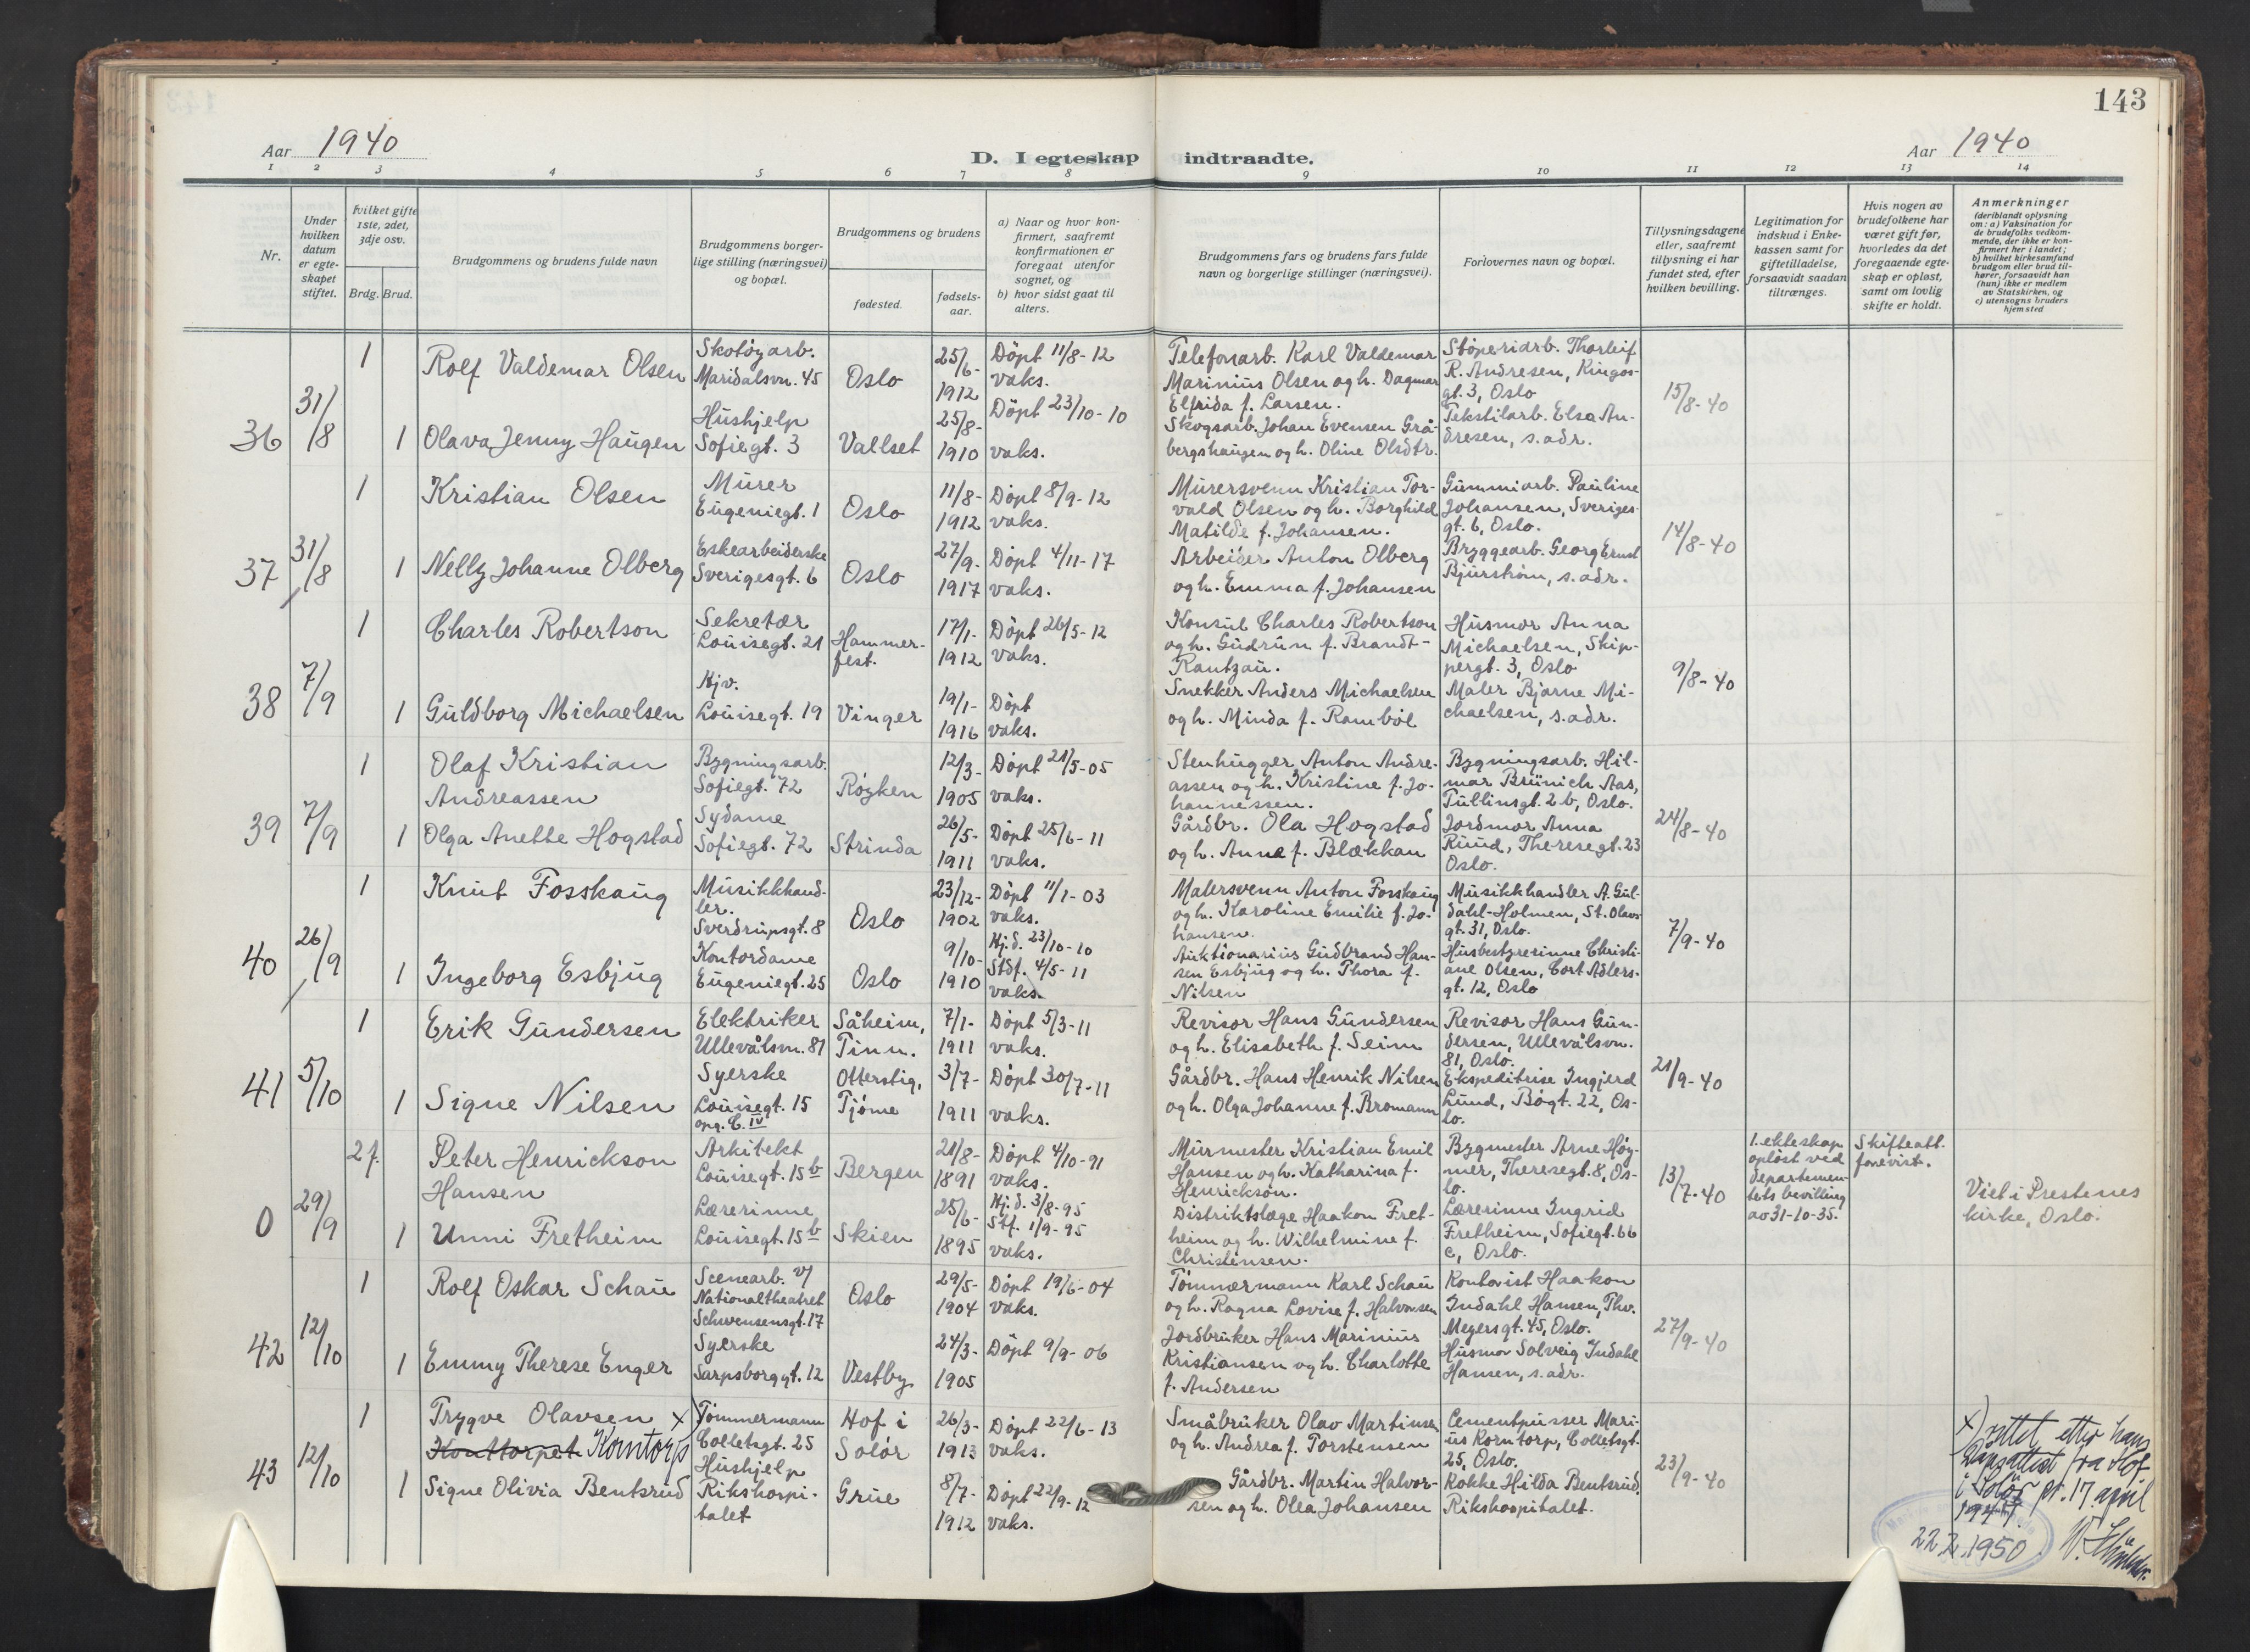 143
Aar 1940
D. I egteskap indtraadte.
Aar 1940
1 2 3 4 5 6 7 8 9 10 11 12 13 14
Nr.
Under hvilken datum er egteskapet stiftet.
hvilket gifte 1ste, 2det, 3dje osv.
Brdg. Brud.
Brudgommens og brudens fulde navn
Brudgommens borgerlige stilling (næringsvei) og bopæl.
Brudgommens og brudens
fødested.
fødselsaar.
a) Naar og hvor konfirmert, saafremt konfirmationen er foregaat utenfor sognet, og
b) hvor sidst gaat til alters.
Brudgommens fars og brudens fars fulde navn og borgerlige stillinger (næringsvei).
Forlovernes navn og bopæl.
Tillysningsdagene eller, saafremt tillysning ei har fundet sted, efter hvilken bevilling.
Legitimation for indskud i Enkekassen samt for giftetilladelse, forsaavidt saadan tiltrænges.
Hvis nogen av brudefolkene har været gift før, hvorledes da det foregaaende egteskap er opløst, samt om lovlig skifte er holdt.
Anmerkninger
(deriblandt oplysning om: a) Vaksination for de brudefolks vedkommende, der ikke er konfirmert her i landet; b) hvilket kirkesamfund brudgom eller brud tilhører, forsaavidt han (hun) ikke er medlem av Statskirken, og c) utensogns bruders hjemsted
36
31/8
1
Rolf Valdemar Olsen
Skotøyarb.
Maridalsvn. 45
Oslo
25/6-
1912
Døpt 11/8-12
vaks.
Telefonarb. Karl Valdemar
Marinius Olsen og h. Dagmar
Elfrida f. Larsen.
Støperiarb. Thorleif
R. Andresen, Kingos-
gt. 3, Oslo
15/8-40
1
Olava Jenny Haugen
Hushjelp
Sofiegt. 3
Vallset
25/8-
1910
Døpt 23/10-10
vaks.
Skogsarb. Johan Evensen Grå-
bergshaugen og h. Oline Olsdtr.
Tekstilarb. Elsa An-
dresen, s. adr.
37
31/8
1
Kristian Olsen
Murer
Eugeniegt. 1
Oslo
11/8-
1912
Døpt 8/9-12
vaks.
Murersvenn Kristian Tor-
vald Olsen og h. Borghild
Matilde f. Johansen.
Gummiarb. Pauline
Johansen, Sveriges-
gt. 6, Oslo.
14/8-40
1
Nelly Johanne Olberg
Eskearbeiderske
Sverigesgt. 6
Oslo
27/9-
1917
Døpt 4/11-17
vaks.
Arbeider Anton Olberg
og h. Emma f. Johansen
Bryggearb. Georg Ernst
Bjurstrøm, s. adr.
38
7/9
1
Charles Robertson
Sekretær
Louisegt. 21
Hammer-
fest.
17/1-
1912
Døpt 26/5-12
vaks.
Konsul Charles Robertson
og h. Gudrun f. Brandt-
Rantzau.
Husmor Anna
Michaelsen, Skip-
pergt. 3, Oslo
9/8-40
1
Guldborg Michaelsen
Hjv.
Louisegt. 19
Vinger
19/1-
1916
Døpt
vaks.
Snekker Anders Michaelsen
og h. Minda f. Rambøl
Maler Bjarne Mi-
chaelsen, s. adr.
39
7/9
1
Olaf Kristian
Andreassen
Bygningsarb.
Sofiegt. 72
Røyken
12/3-
1905
Døpt 21/5-05
vaks.
Stenhugger Anton Andre-
assen og h. Kristine f. Jo-
hannessen.
Bygningsarb. Hil-
mar Brünich Aas,
Tullinsgt. 2 b, Oslo.
24/8-40
1
Olga Anette Hogstad
Sydame
Sofiegt. 72
Strinda
26/5-
1911
Døpt 25/6-11
vaks.
Gårdbr. Ola Hogstad
og h. Anna f. Blækkan
Jordmor Anna
Ruud, Theresegt. 23
Oslo.
40
26/9
1
Knut Fosskaug
Musikkhand-
ler.
Sverdrupsgt. 8
Oslo
23/12-
1902
Døpt 11/1-03
vaks.
Malersvenn Anton Fosskaug
og h. Karoline Emilie f. Jo-
hansen.
Musikkhandler A. Gul-
dahl-Holmen, St. Olavs
gt. 31, Oslo.
7/9-40
1
Ingeborg Esbjug
Kontordame
Eugeniegt. 25
Oslo
9/10-
1910
Hj.d. 23/10-10
Stdf. 4/5-11
vaks.
Auktionarius Gudbrand Han-
sen Esbjug og h. Thora f.
Nilsen
Husbestyrerinne Christi-
ane Olsen, Cort Adlers-
gt. 12, Oslo
41
5/10
1
Erik Gundersen
Elektriker
Ullevålsvn. 81
Såheim,
Tinn.
7/1-
1911
Døpt 5/3-11
vaks.
Revisor Hans Gundersen
og h. Elisabeth f. Seim
Revisor Hans Gun-
dersen, Ullevålsvn.
81, Oslo.
21/9-40
1
Signe Nilsen
Syerske
Louisegt. 15
opg. C. IV
Otterstig,
Tjøme
3/7-
1911
Døpt 30/7-11
vaks.
Gårdbr. Hans Henrik Nilsen
og h. Olga Johanne f. Bromann
Ekspeditrise Ingjerd
Lund, Bogt. 22, Os-
lo.
0
29/9
2 f.
Peter Henrickson
Hansen
Arkitekt
Louisegt. 15 b
Bergen
21/8-
1891
Døpt 4/10-91
vaks.
Murmester Kristian Emil
Hansen og h. Katharina f.
Henrickson.
Bygmester Arne Høy-
mer, Theresegt. 8, Os-
lo.
13/7-40
1. ekteskap
opløst ved
departemen-
tets bevilling
av 31-10-35.
Skifteatt.
forevist.
Viet i Prestenes
kirke, Oslo.
1
Unni Fretheim
Lærerinne
Louisegt. 15 b
Skien
25/6-
1895
Hj.d. 3/8-95
Stf. 1/9-95
vaks.
Distriktslæge Haakon Fret-
heim og h. Wilhelmine f.
Christensen.
Lærerinne Ingrid
Fretheim, Sofiegt. 66
c, Oslo.
42
12/10
1
Rolf Oskar Schau
Scenearb. v/
Nationaltheatret
Schwensensgt. 17
Oslo
29/5-
1904
Døpt 19/6-04
vaks.
Tømmermann Karl Schau
og h. Ragna Lovise f. Halvorsen
Kontorist Haakon
Indahl Hansen, Thv.
Meyersgt. 45, Oslo.
27/9-40
1
Emmy Therese Enger
Syerske
Sarpsborggt. 12
Vestby
24/3-
1905
Døpt 9/9-06
Jordbruker Hans Marinius
Kristiansen og h. Charlotte
f. Andersen
Husmor Solveig Indahl
Hansen, s. adr.
43
12/10
1
Trygve Olavsen x)
Konttorpet Korntorp
Tømmermann
Colletsgt. 25
Hof i
Solør
26/3-
1913
Døpt 22/6-13
vaks.
Småbruker Olav Martinsen
og h. Andrea f. Torstensen
Cementpusser Mari-
us Korntorp, Colletsgt.
25, Oslo.
23/9-40
1
Signe Olivia Bentsrud
Hushjelp
Rikshospi-
talet
Grue
8/7-
1912
Døpt 22/9-12
vaks.
Gårdbr. Martin Halvor-
sen og h. Olea Johansen
Kokke Hilda Bentsrud,
Rikshospitalet.
x) rettet etter hans
Dåpsattest fra Hof
i Solør pr. 17 april
22 2. 1950